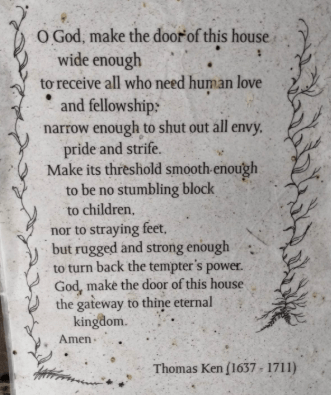 O God, make the door of this house
wide enough
to receive all who need human love
and fellowship;
narrow enough to shut out all envy,
pride and strife.
Make its threshold smooth enough
to be no stumbling block
to children,
nor to straying feet,
but rugged and strong enough
to turn back the tempter's power.
God, make the door of this house
the gateway to thine eternal
kingdom.
Amen
Thomas Ken (1637 - 1711)